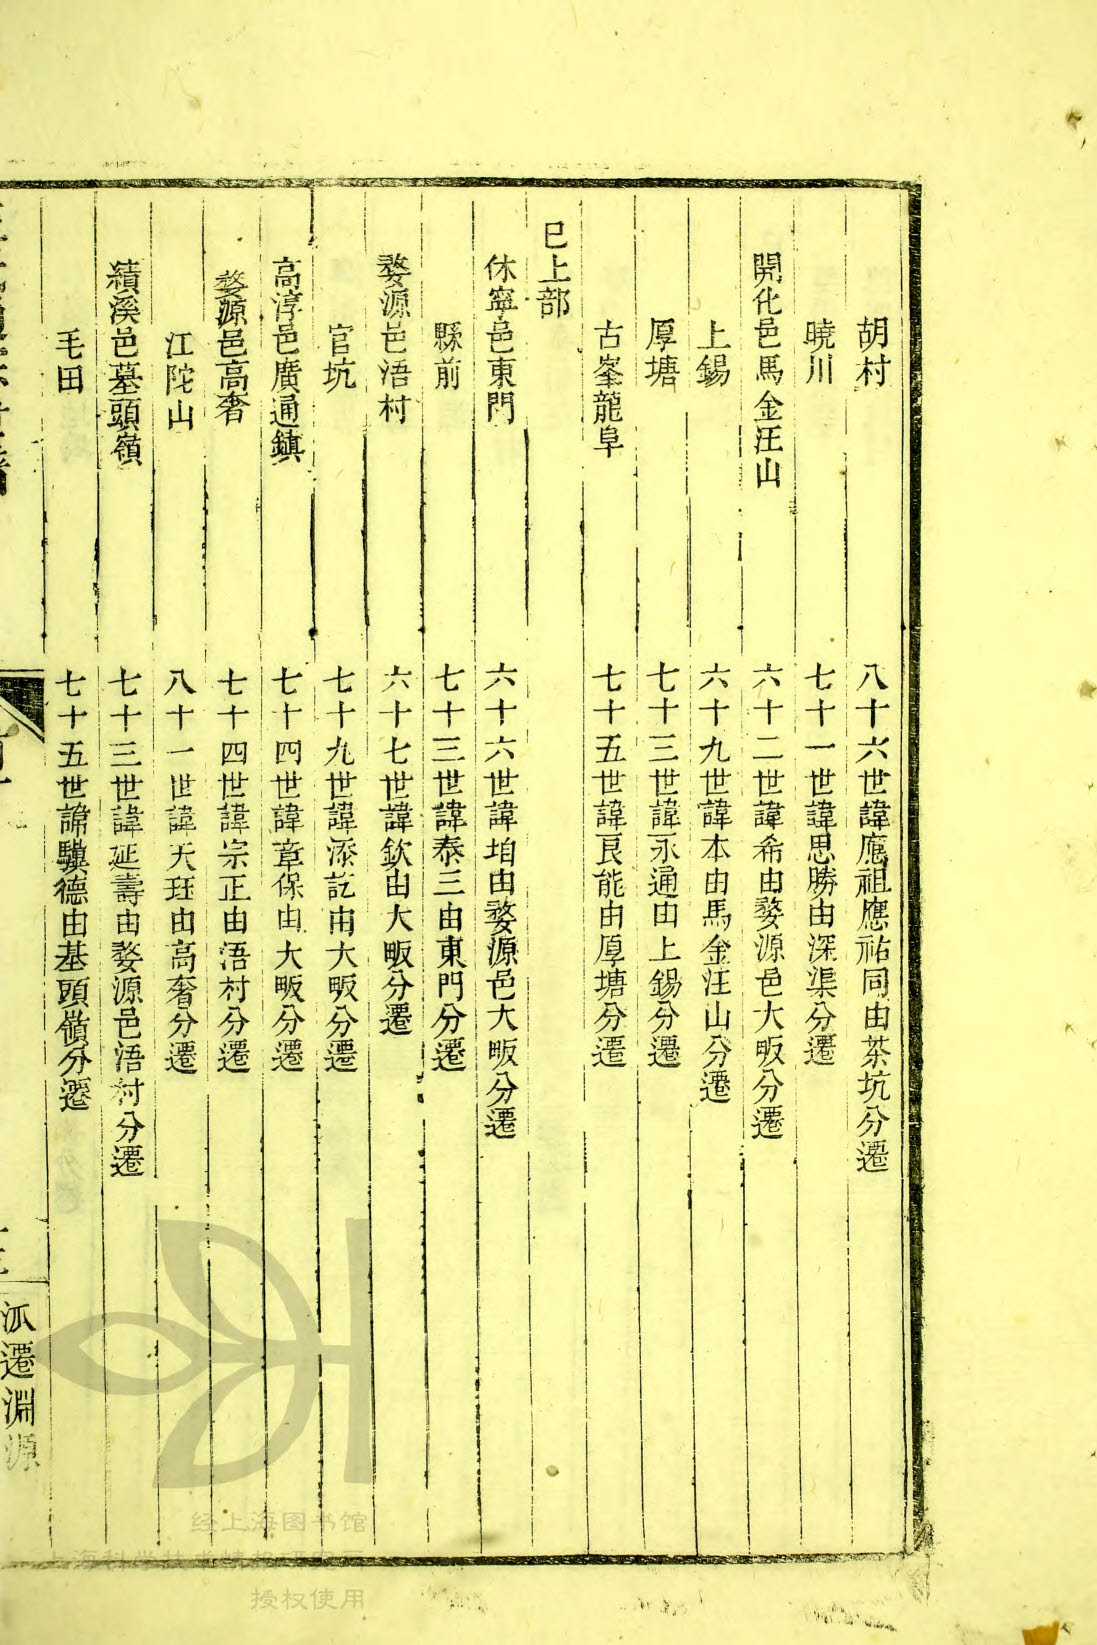 胡村 八十六世諱應祖應祐同由茶坑分遷
曉川 七十一世諱思勝由深渠分遷
開化邑馬金汪山 六十二世諱希由婺源邑大畈分遷
上錫 六十九世諱本由馬金汪山分遷
厚塘 七十三世諱永通由上錫分遷
古峯龍阜 七十五世諱良能由厚塘分遷
巳上部
休寧邑東門 六十六世諱垍由婺源邑大畈分遷
縣前 七十三世諱泰三由東門分遷
婺源邑浯村 六十七世諱欽由大畈分遷
官坑 七十九世諱添訖由大畈分遷
高淳邑廣通鎮 七十四世諱章保由大畈分遷
婺源邑高奢 七十四世諱宗正由浯村分遷
江陀山 八十一世諱天玨由高奢分遷
績溪邑墓頭嶺 七十三世諱延壽由婺源邑浯村分遷
毛田 七十五世諱驥德由基頭嶺分遷
派遷淵源
经上海图书馆
上海科学技术情报研究所
授权使用